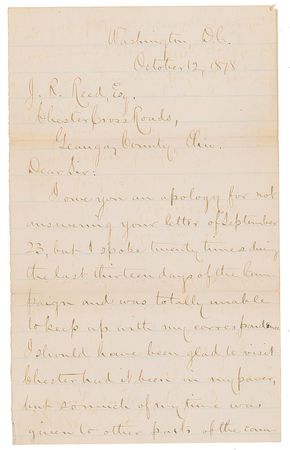 Washington, D.C.
October 12, 1878
J. R. Reed, Esq.
Chester Cross Roads,
Geauga, County, Ohio.
Dear Sir:
I owe you an apology for not
answering your letter of September
23, but I spoke twenty times during
the last thirteen days of the Cam-
paign and was totally unable
to keep up with my correspondence
I should have been glad to visit
Chester had it been in my power,
but so much of my time was
given to other parts of the cam